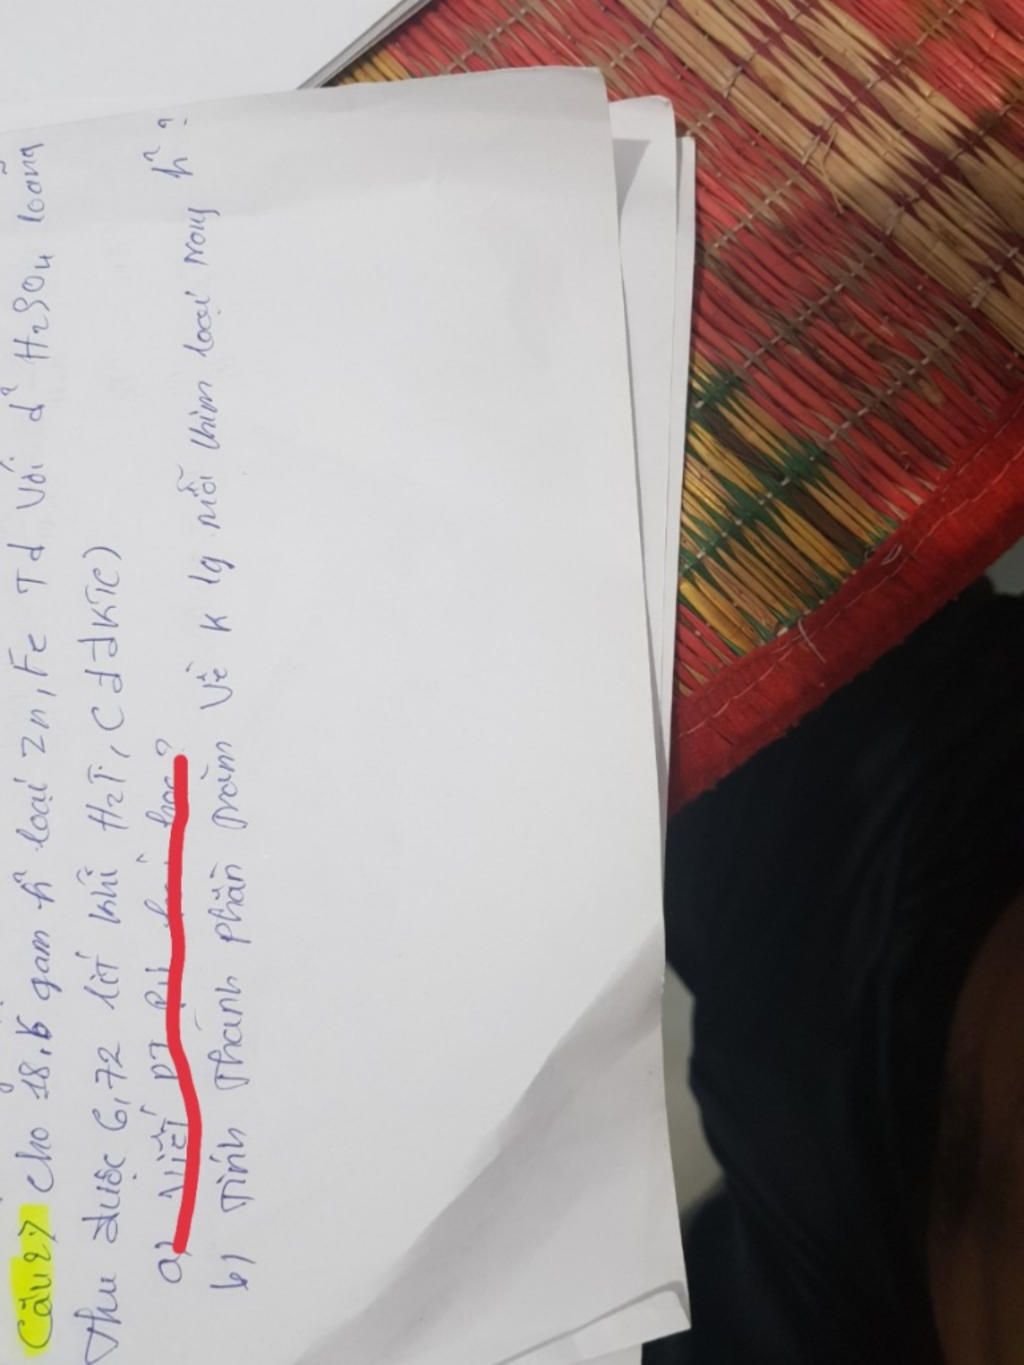 Câu 2> Cho 18,6 gam h² loại Zn, Fe Td với d² H2SO4 loãng
Thu được 6,72 lít khí H2T, C đđKTC)
a> Viết PT học?
b) Tính Thành phần trăm về K lg mỗi khim loại trong h²?